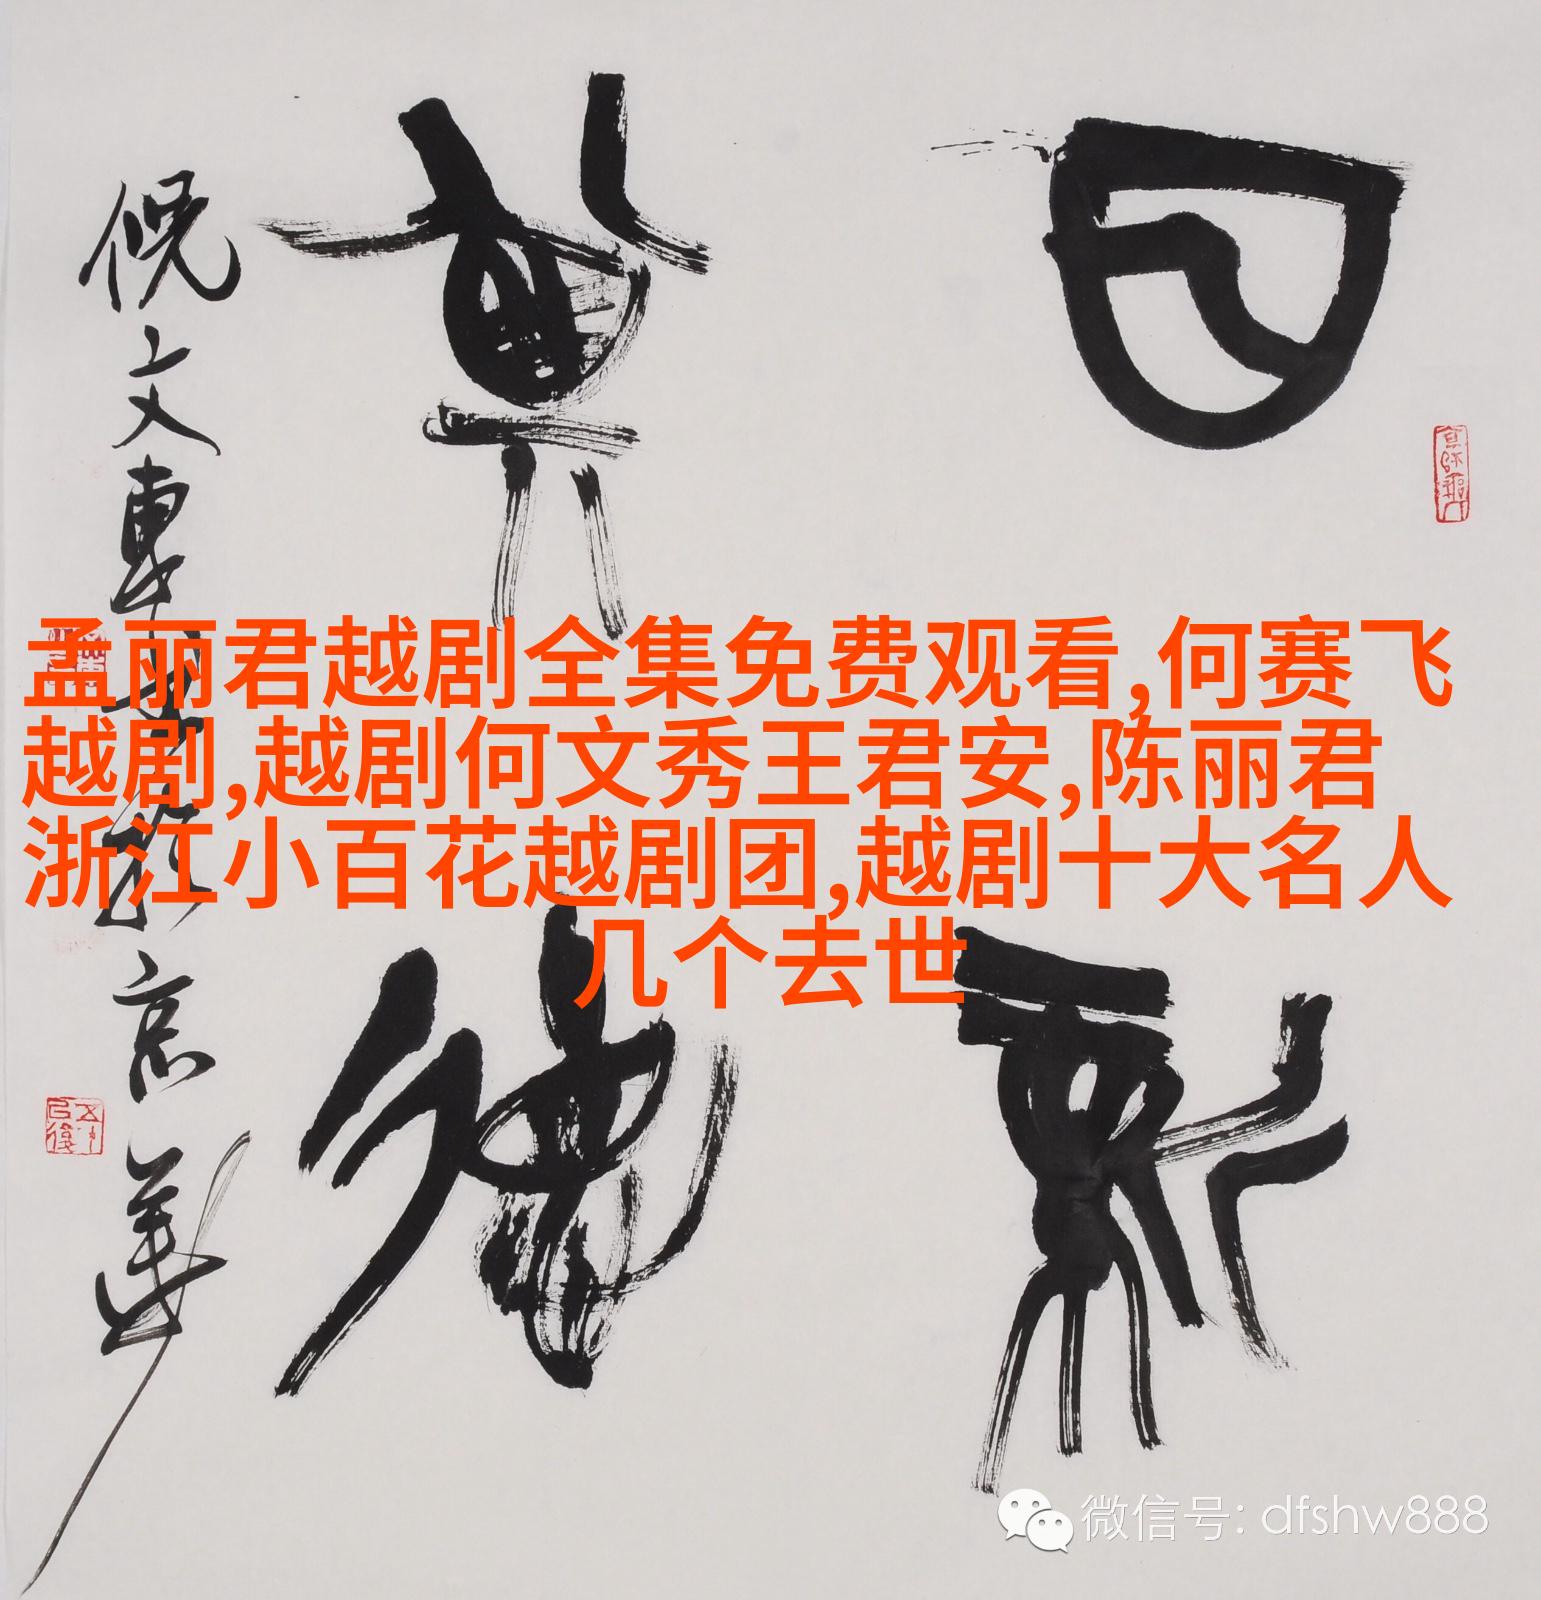 孟丽君越剧全集免费观看,何赛飞
越剧,越剧何文秀王君安,陈丽君
浙江小百花越剧团,越剧十大名人
几个去世
日新
其德
倪文東書於京華
微信号: dfshw888